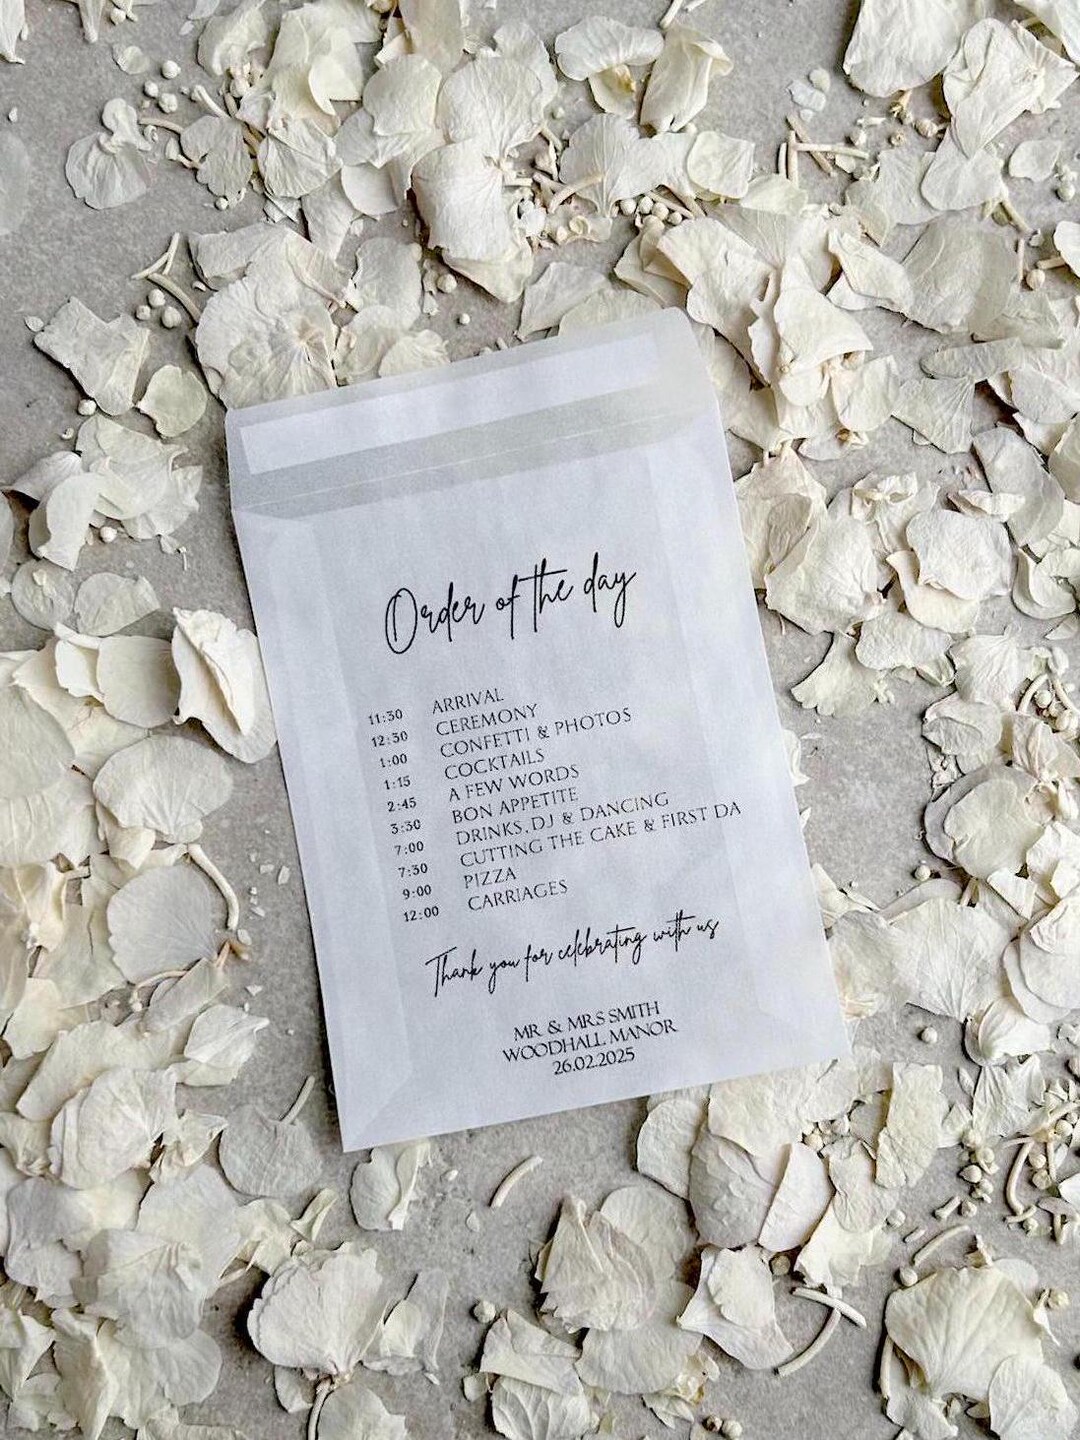 Order of the day
11:30 ARRIVAL
12:30 CEREMONY
1:00 CONFETTI & PHOTOS
1:15 COCKTAILS
2:45 A FEW WORDS
3:30 BON APPETITE
7:00 DRINKS, DJ & DANCING
7:30 CUTTING THE CAKE & FIRST DA
9:00 PIZZA
12:00 CARRIAGES
Thank you for celebrating with us
MR & MRS SMITH
WOODHALL MANOR
26.02.2025